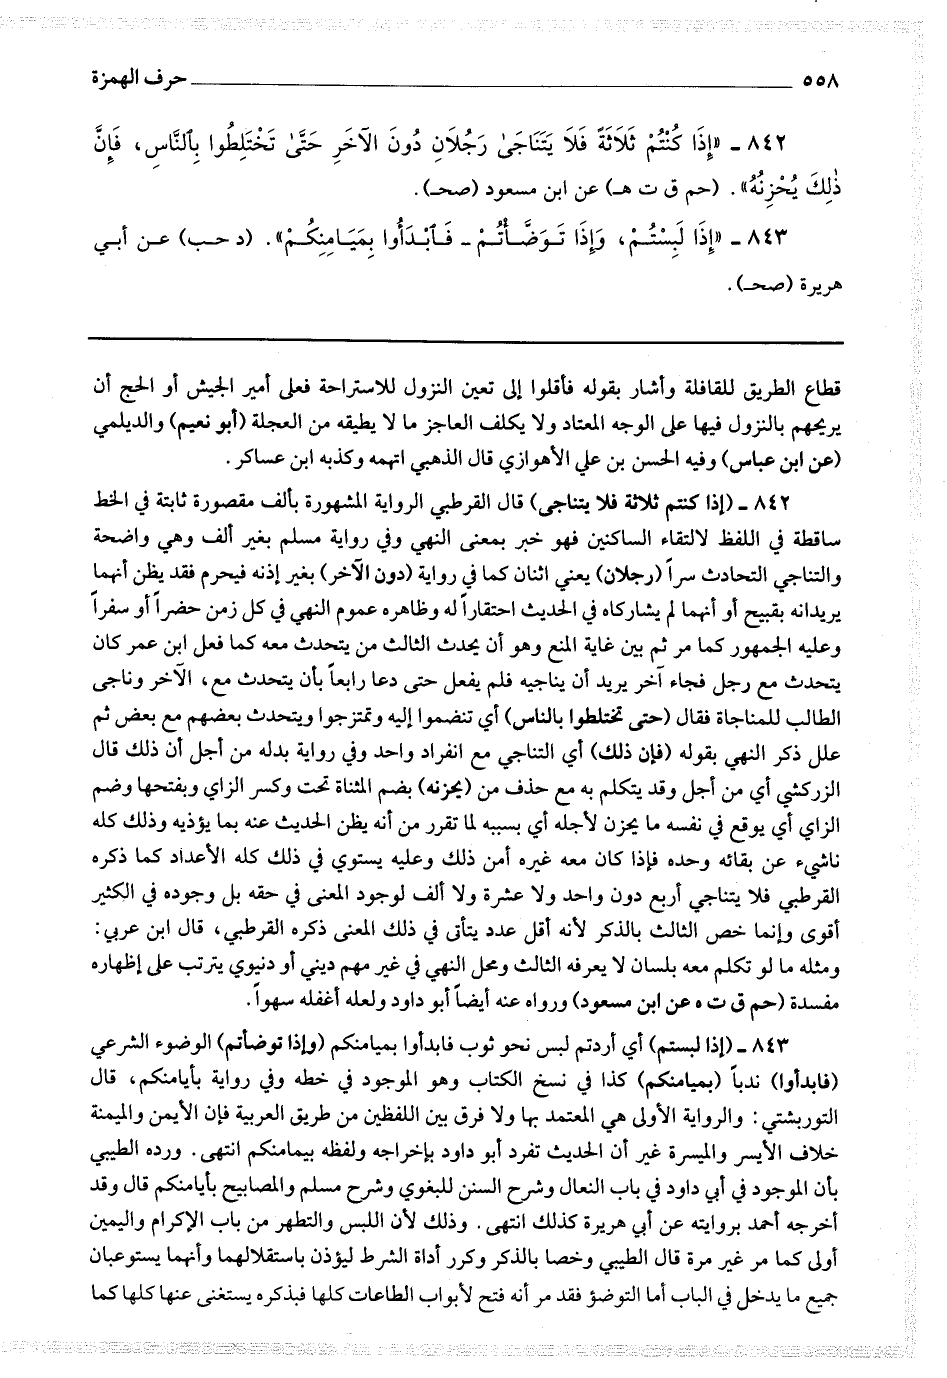 ٥٥٨ حرف الهمزة
٨٤٢ ـ «إِذَا كُنْتُمْ ثَلَاثَةً فَلَا يَتَنَاجَىٰ رَجُلَانِ دُونَ الآخَرِ حَتَّىٰ تَخْتَلِطُوا بِالنَّاسِ، فَإِنَّ
ذٰلِكَ يُحْزِنُهُ». (حم ق ت هـ) عن ابن مسعود (صحـ).
٨٤٣ ـ «إِذَا لَبِسْتُمْ، وَإِذَا تَوَضَّأْتُمْ ـ فَابْدَأُوا بِمَيَامِنِكُمْ». (د حب) عن أبي
هريرة (صحـ).
قطاع الطريق للقافلة وأشار بقوله فأقلوا إلى تعين النزول للاستراحة فعلى أمير الجيش أو الحج أن
يريحهم بالنزول فيها على الوجه المعتاد ولا يكلف العاجز ما لا يطيقه من العجلة (أبو نعيم) والديلمي
(عن ابن عباس) وفيه الحسن بن علي الأهوازي قال الذهبي اتهمه وكذبه ابن عساكر.
٨٤٢ ـ (إذا كنتم ثلاثة فلا يتناجى) قال القرطبي الرواية المشهورة بألف مقصورة ثابتة في الخط
ساقطة في اللفظ لالتقاء الساكنين فهو خبر بمعنى النهي وفي رواية مسلم بغير ألف وهي واضحة
والتناجي التحادث سراً (رجلان) يعني اثنان كما في رواية (دون الآخر) بغير إذنه فيحرم فقد يظن أنهما
يريدانه بقبيح أو أنهما لم يشاركاه في الحديث احتقاراً له وظاهره عموم النهي في كل زمن حضراً أو سفراً
وعليه الجمهور كما مر ثم بين غاية المنع وهو أن يحدث الثالث من يتحدث معه كما فعل ابن عمر كان
يتحدث مع رجل فجاء آخر يريد أن يناجيه فلم يفعل حتى دعا رابعاً بأن يتحدث مع، الآخر وناجى
الطالب للمناجاة فقال (حتى تختلطوا بالناس) أي تنضموا إليه وتمتزجوا ويتحدث بعضهم مع بعض ثم
علل ذكر النهي بقوله (فإن ذلك) أي التناجي مع انفراد واحد وفي رواية بدله من أجل أن ذلك قال
الزركشي أي من أجل وقد يتكلم به مع حذف من (يحزنه) بضم المثناة تحت وكسر الزاي وبفتحها وضم
الزاي أي يوقع في نفسه ما يحزن لأجله أي بسببه لما تقرر من أنه يظن الحديث عنه بما يؤذيه وذلك كله
ناشيء عن بقائه وحده فإذا كان معه غيره أمن ذلك وعليه يستوي في ذلك كله الأعداد كما ذكره
القرطبي فلا يتناجي أربع دون واحد ولا عشرة ولا ألف لوجود المعنى في حقه بل وجوده في الكثير
أقوى وإنما خص الثالث بالذكر لأنه أقل عدد يتأتى في ذلك المعنى ذكره القرطبي، قال ابن عربي:
ومثله ما لو تكلم معه بلسان لا يعرفه الثالث ومحل النهي في غير مهم ديني أو دنيوي يترتب على إظهاره
مفسدة (حم ق ت ه عن ابن مسعود) ورواه عنه أيضاً أبو داود ولعله أغفله سهواً.
٨٤٣ ـ (إذا لبستم) أي أردتم لبس نحو ثوب فابدأوا بميامنكم (وإذا توضأتم) الوضوء الشرعي
(فابدأوا) ندباً (بميامنكم) كذا في نسخ الكتاب وهو الموجود في خطه وفي رواية بأيامنكم، قال
التوربشتي: والرواية الأولى هي المعتمد بها ولا فرق بين اللفظين من طريق العربية فإن الأيمن والميمنة
خلاف الأيسر والميسرة غير أن الحديث تفرد أبو داود بإخراجه ولفظه بيمامنكم انتهى. ورده الطيبي
بأن الموجود في أبي داود في باب النعال وشرح السنن للبغوي وشرح مسلم والمصابيح بأيامنكم قال وقد
أخرجه أحمد بروايته عن أبي هريرة كذلك انتهى. وذلك لأن اللبس والتطهر من باب الإكرام واليمين
أولى كما مر غير مرة قال الطيبي وخصا بالذكر وكرر أداة الشرط ليؤذن باستقلالهما وأنهما يستوعبان
جميع ما يدخل في الباب أما التوضؤ فقد مر أنه فتح لأبواب الطاعات كلها فبذكره يستغنى عنها كلها كما